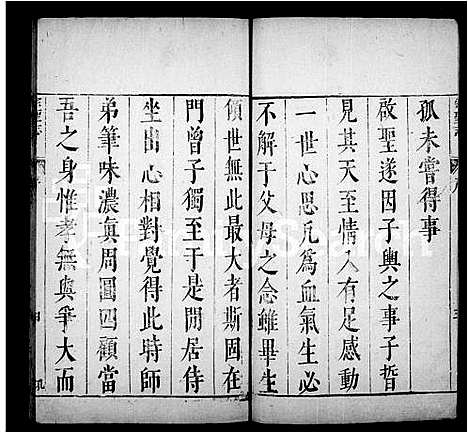 孤未嘗得事
啟聖遂因子輿之事子晳
見其天至情人有足感動
一世心思凡為血氣生必
不解于父母之念雖畢生
傾世無此最大者斯固在
門曾子獨至于是閒居侍
坐出心相對覺得此時師
弟筆味濃真周圓四顧當
吾之身惟孝無與爭大而